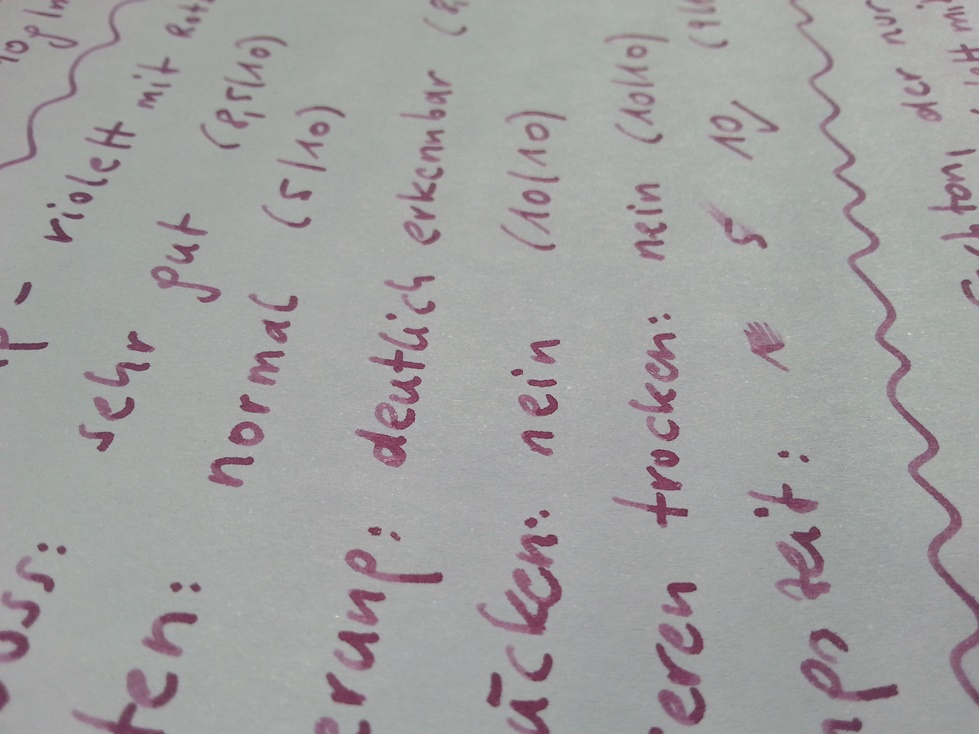 violett mit Rot
oss: sehr gut (8,5/10)
ten: normal (5/10)
erung: deutlich erkennbar
ücken: nein (10/10)
ieren trocken: nein (10/10)
ngszeit: 1 5 10